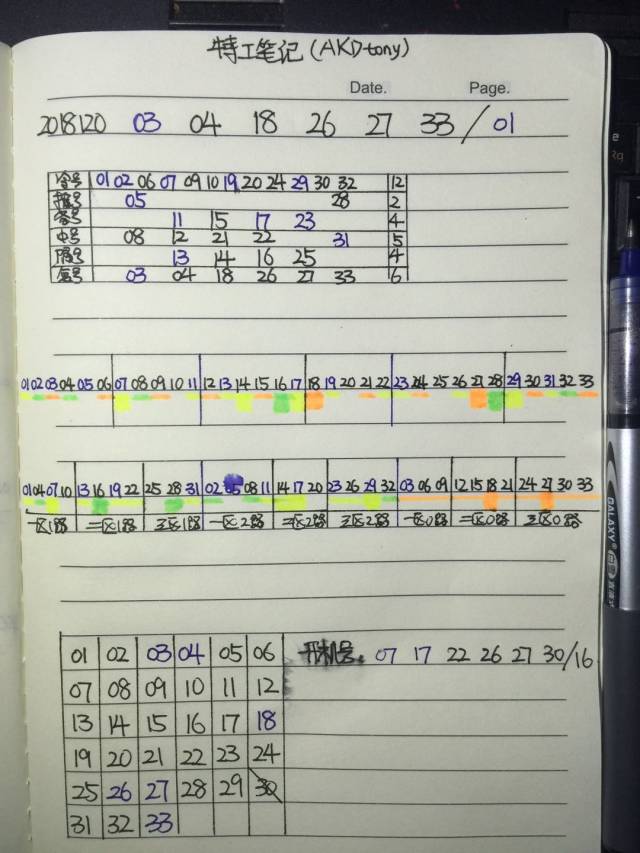 特工笔记(AKD-tony)
Date. Page.
2018120 03 04 18 26 27 33/01
冷号 01 02 06 07 09 10 19 20 24 29 30 32 12
05 28 2
11 15 17 23 4
中号 08 12 21 22 31 5
隔号 13 14 16 25 4
03 04 18 26 27 33 6
01 02 03 04 05 06 07 08 09 10 11 12 13 14 15 16 17 18 19 20 21 22 23 24 25 26 27 28 29 30 31 32 33
01 04 07 10 13 16 19 22 25 28 31 02 05 08 11 14 17 20 23 26 29 32 03 06 09 12 15 18 21 24 27 30 33
一区1路 二区1路 三区1路 一区2路 二区2路 三区2路 一区0路 二区0路 三区0路
01 02 03 04 05 06 开机号. 07 17 22 26 27 30/16
07 08 09 10 11 12
13 14 15 16 17 18
19 20 21 22 23 24
25 26 27 28 29 30
31 32 33
GALAXY